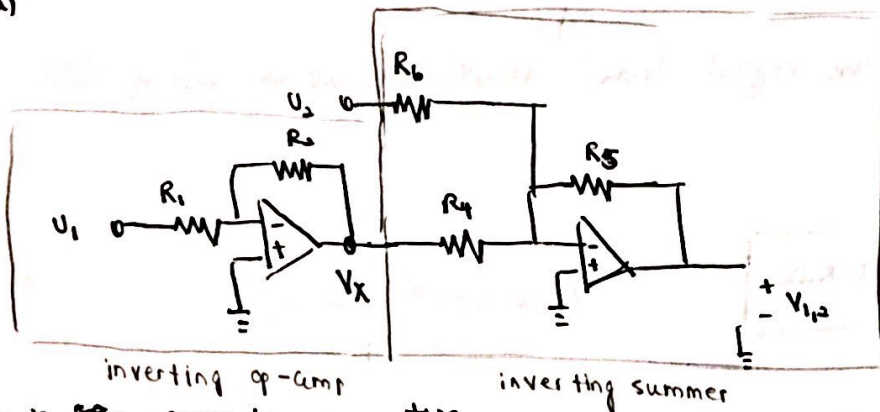 R6
U2
R2
R5
R1
R4
U1
-
+
-
+
VX
+
-
V1,2
inverting op-amp
inverting summer